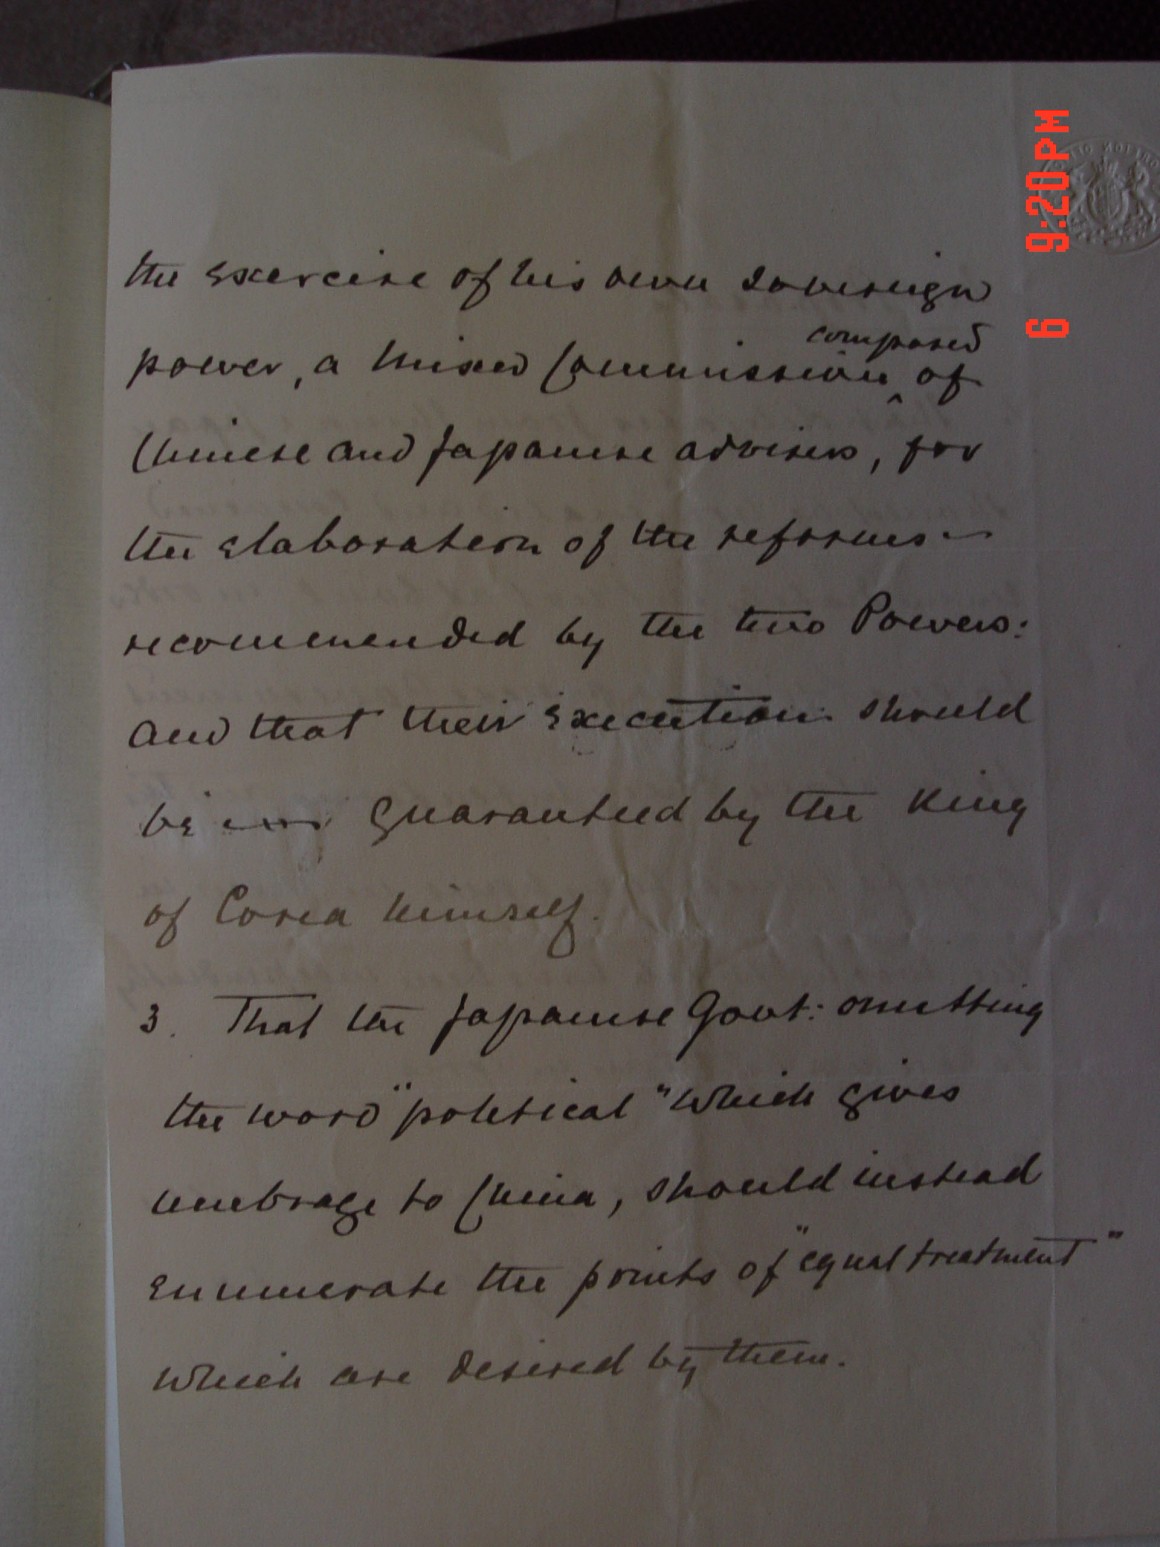 the exercise of his own Sovereign
composed
power, a mixed Commission of
Chinese and Japanese advisers, for
the elaboration of the reforms
recommended by the two Powers:
and that their execution should
be guaranteed by the King
of Corea himself.
3. That the Japanese Govt: omitting
the word "political" which gives
umbrage to China, should instead
enumerate the points of "equal treatment"
which are desired by them.
6 9:20PM